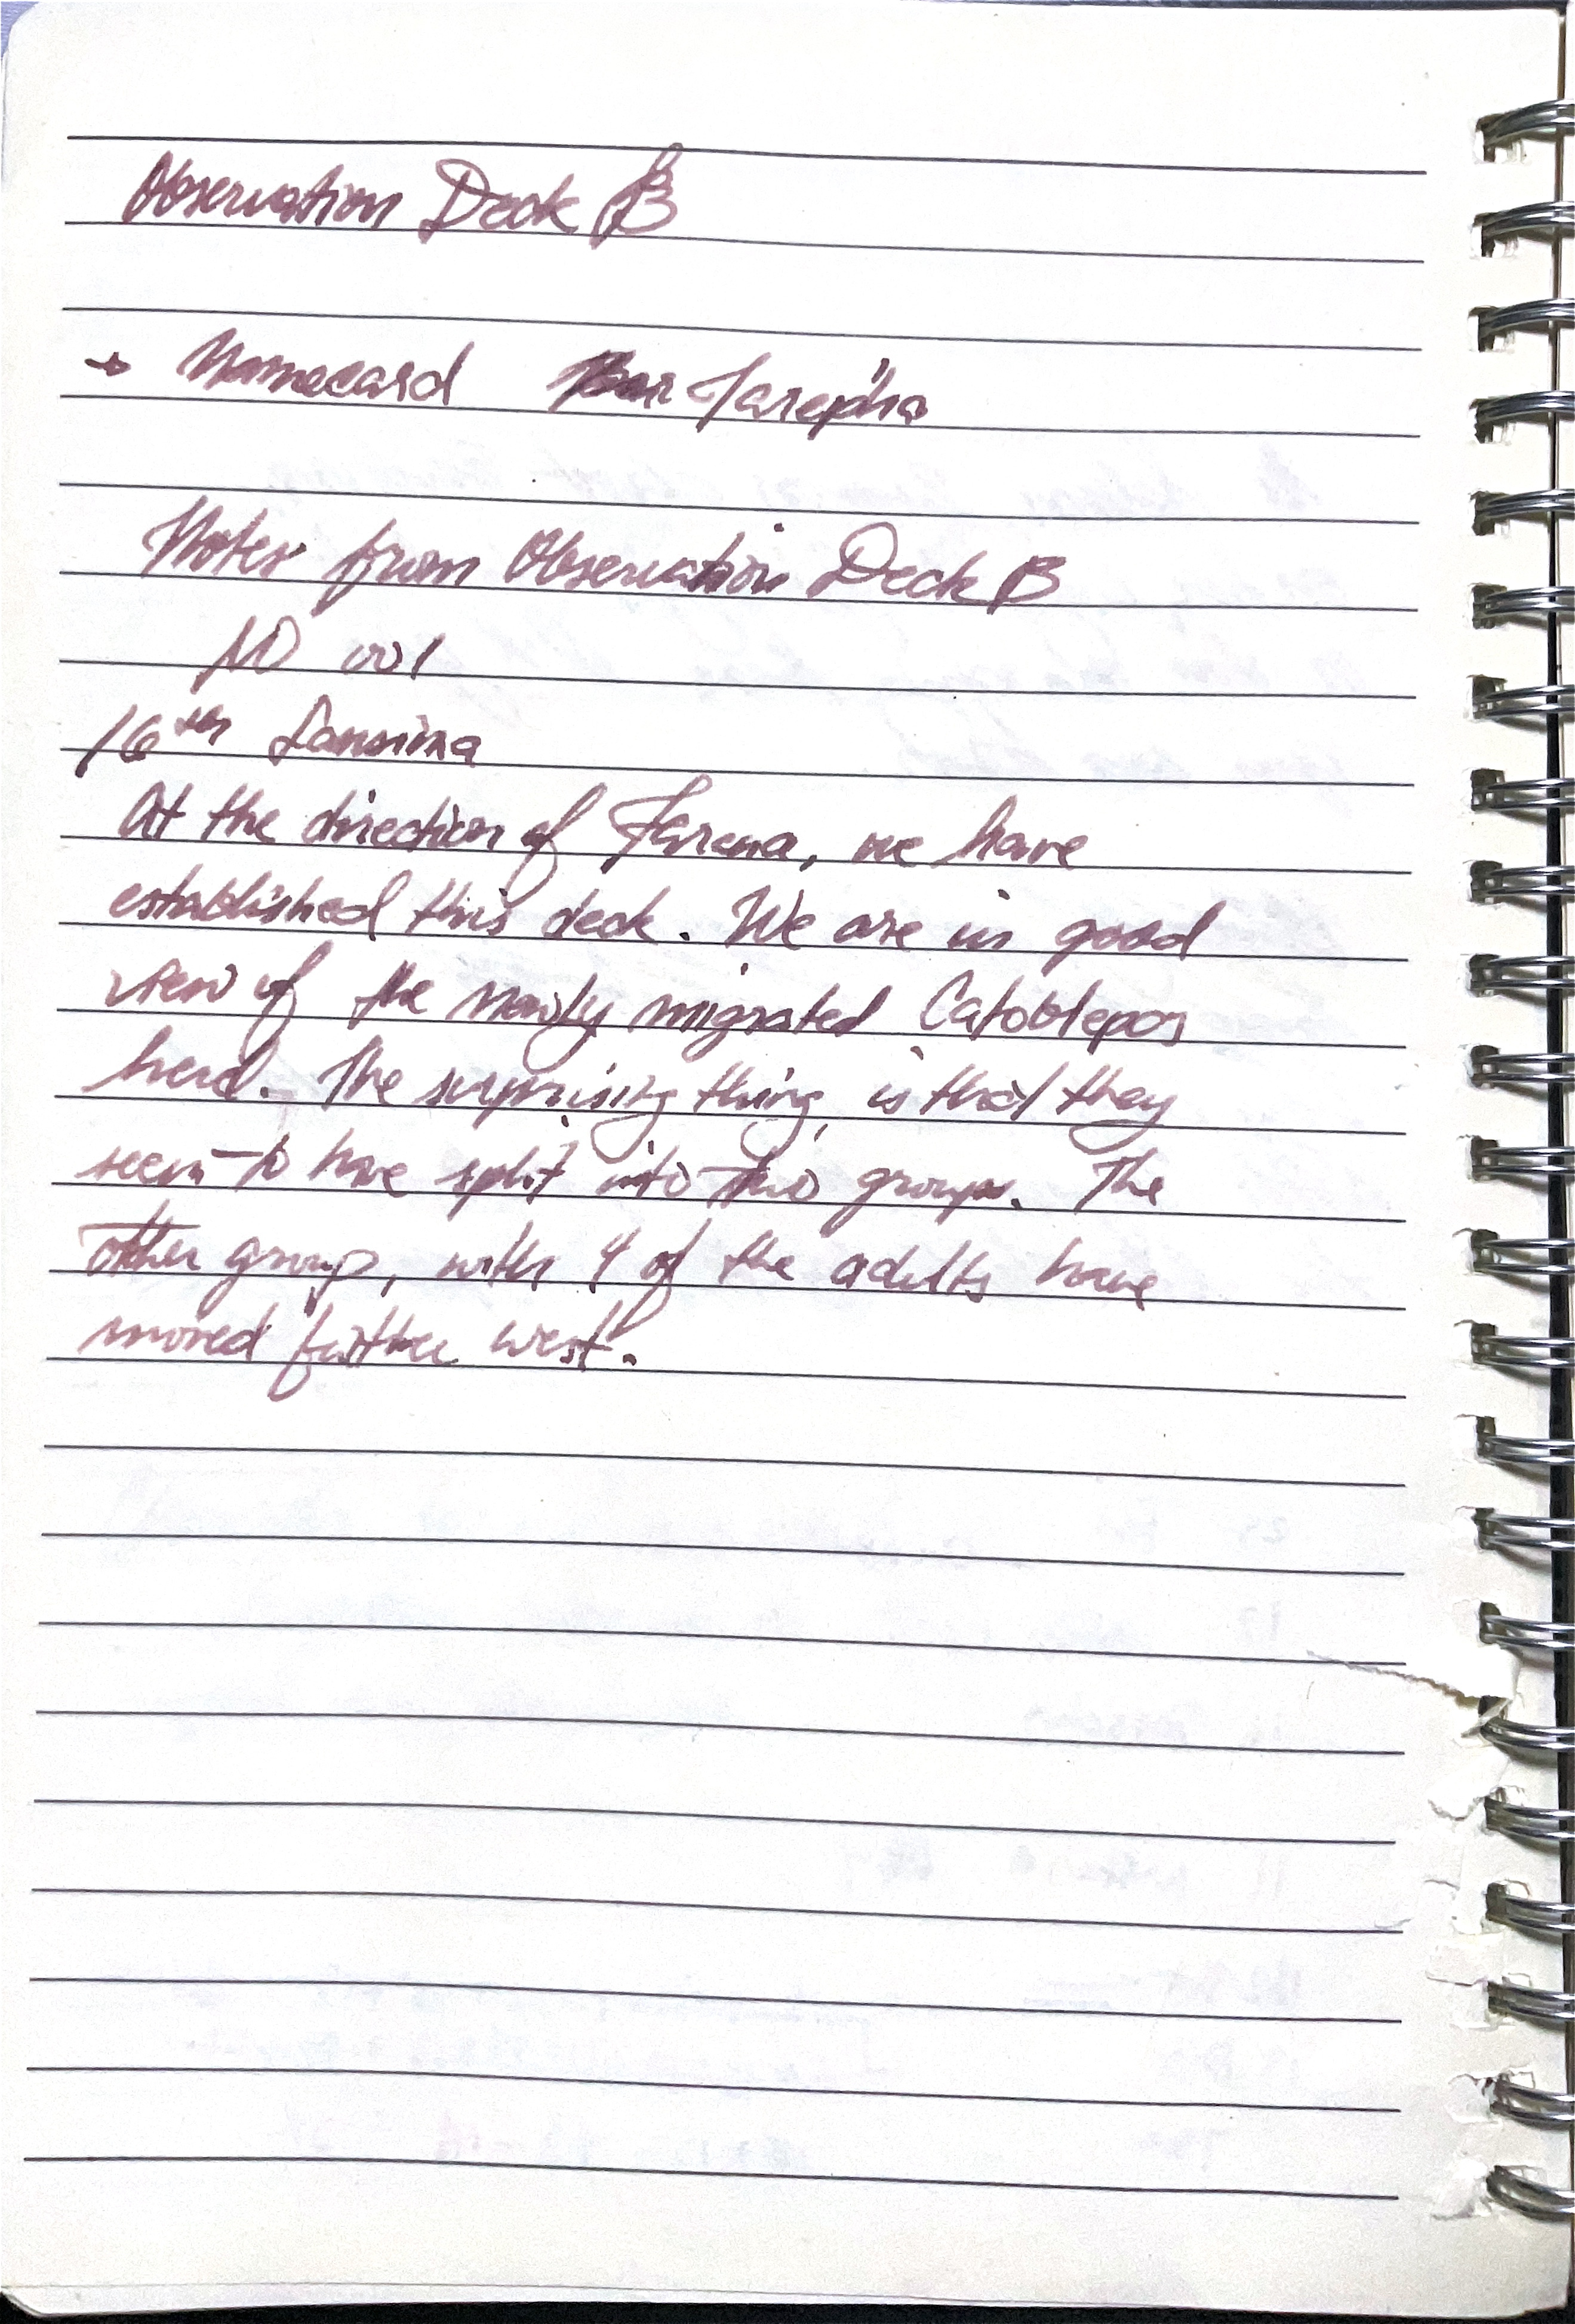 Observation Deck B
→ Namecard Tarepha
Notes from Observation Deck B
001
16th Lansima
At the direction of Farena, we have
established this deck. We are in good
view of the newly migrated Catoblepas
herd. The surprising thing, is that they
seem to have split into two groups. The
other group, with 4 of the adults have
moved further west.